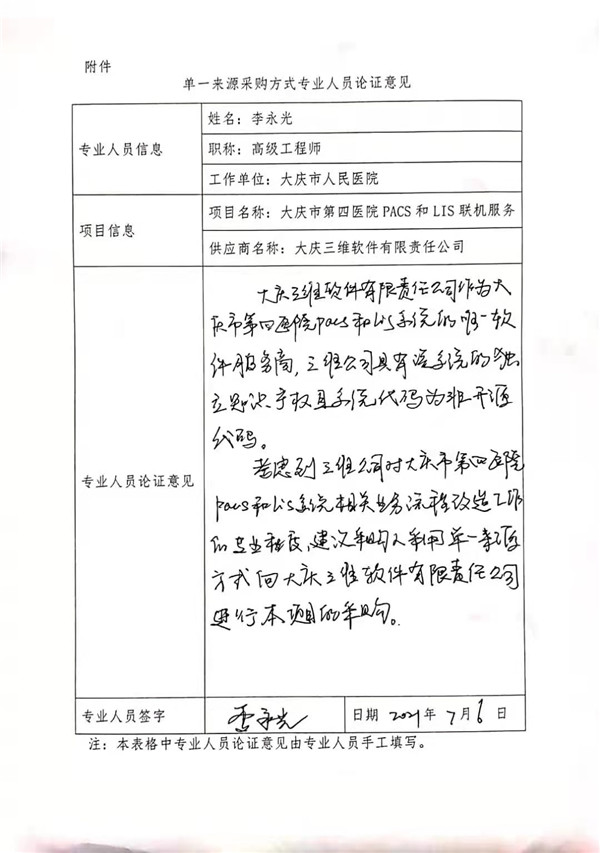 附件
单一来源采购方式专业人员论证意见
专业人员信息
姓名：李永光
职称：高级工程师
工作单位：大庆市人民医院
项目信息
项目名称：大庆市第四医院 PACS 和 LIS 联机服务
供应商名称：大庆三维软件有限责任公司
专业人员论证意见
大庆三维软件有限责任公司作为大
庆市第四医院pacs和Lis系统的唯一软
件服务商，三维公司具有该系统的独
立知识产权且系统代码为非开源
代码。
考虑到三维公司对大庆市第四医院
pacs和Lis系统相关业务流程改造工作
的专业程度，建议采购人采用单一来源
方式向大庆三维软件有限责任公司
进行本项目的采购。
专业人员签字
李永光
日期 2021年 7月 6 日
注：本表格中专业人员论证意见由专业人员手工填写。